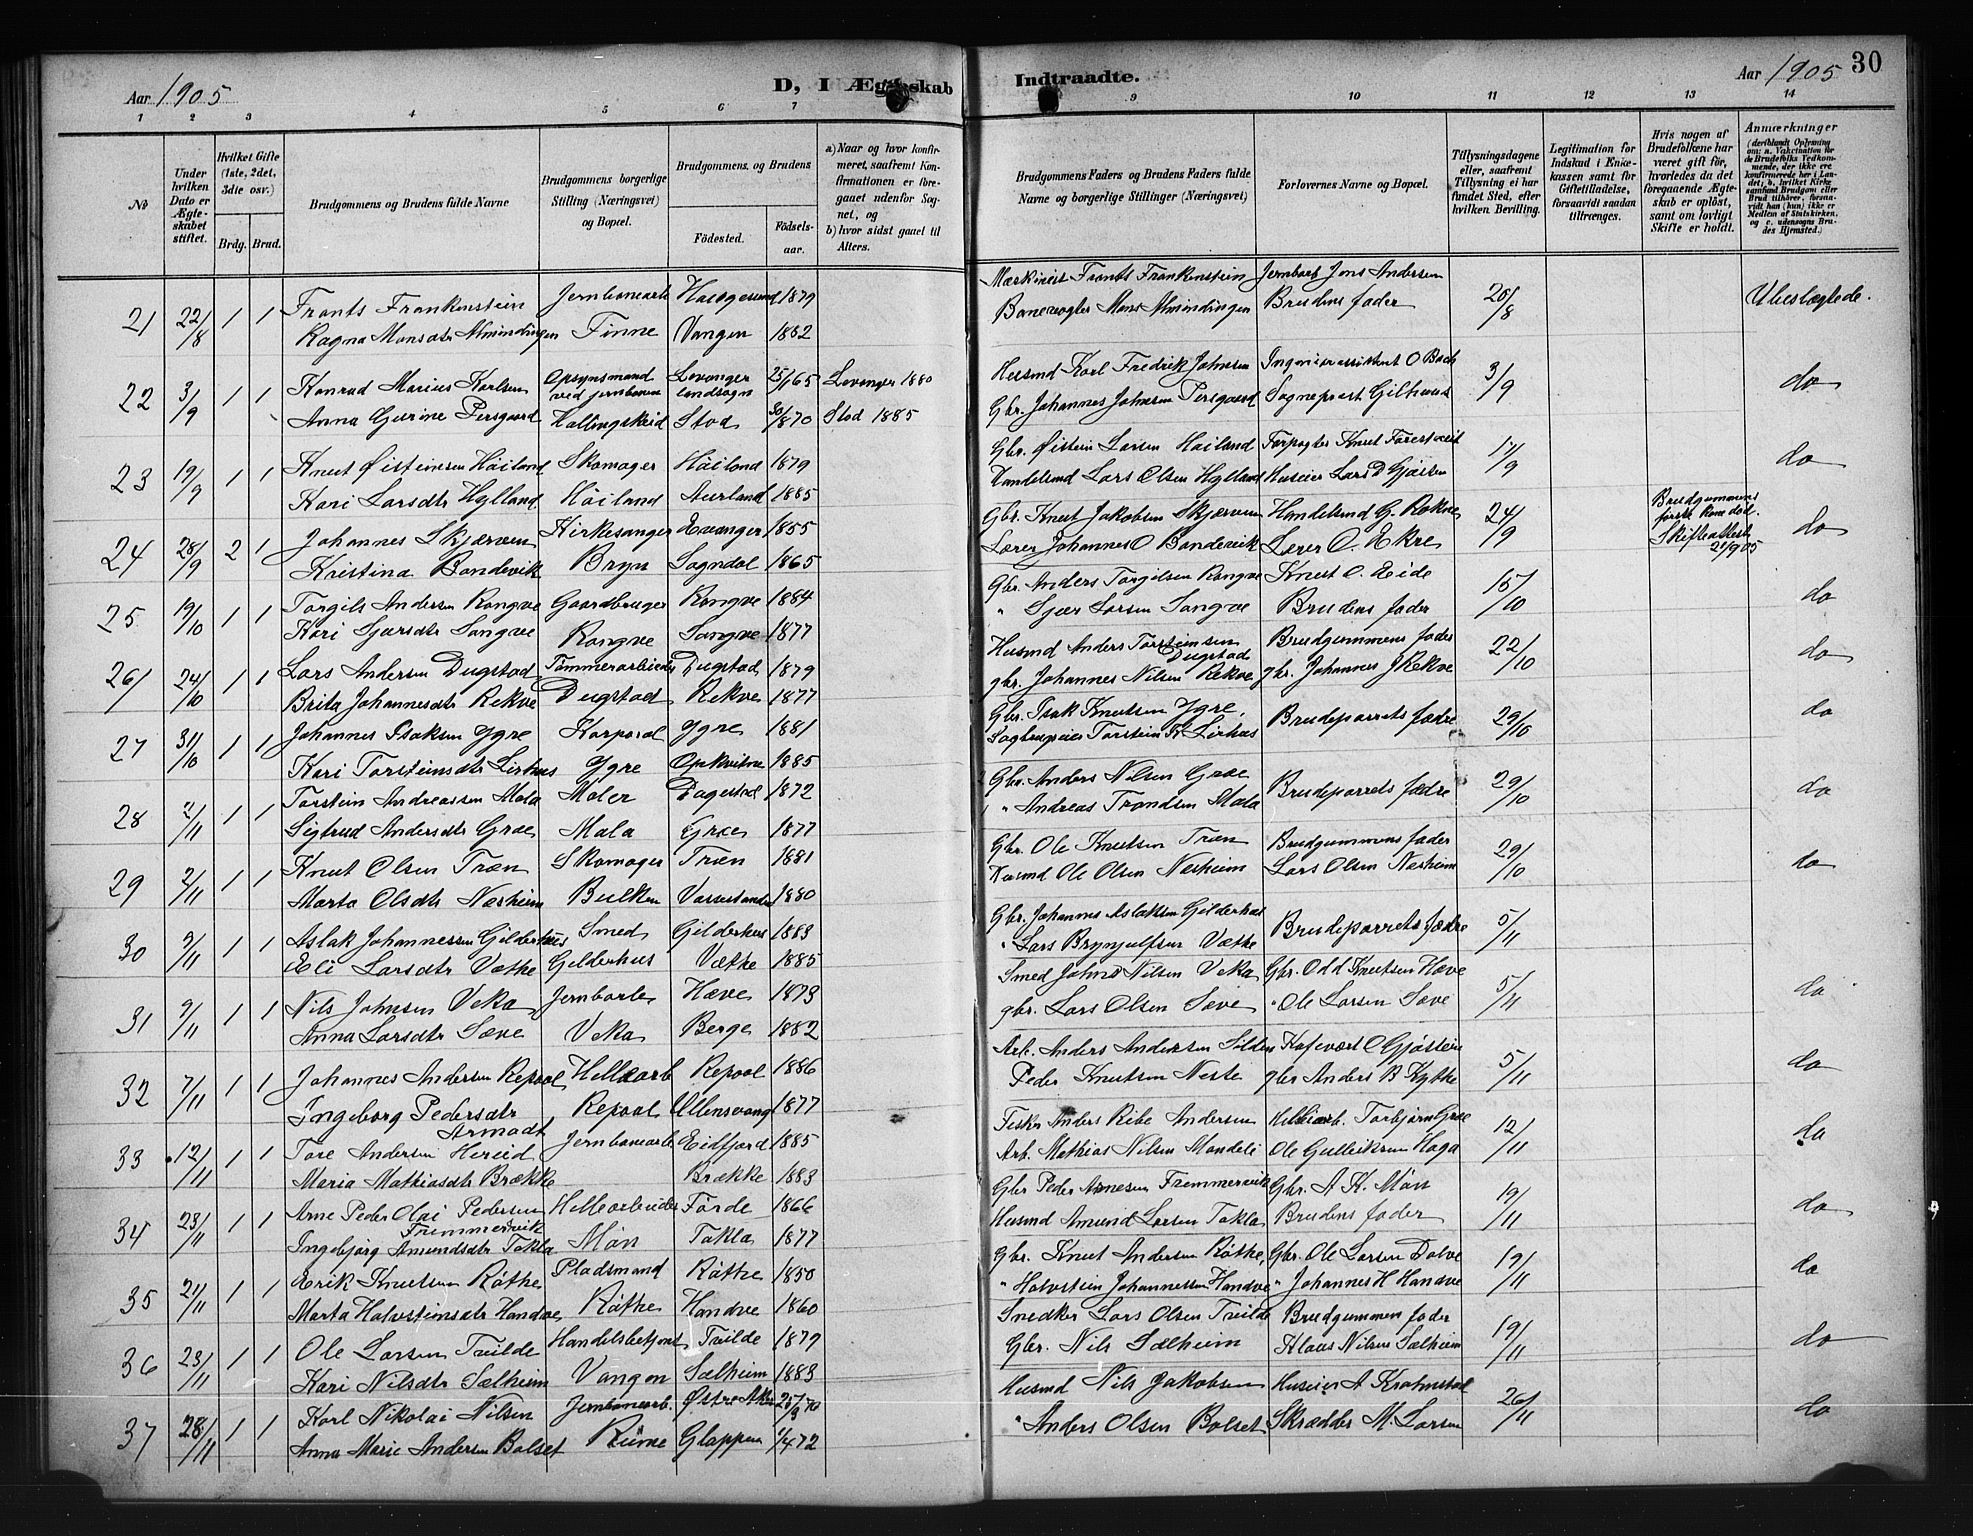 Aar 1905
D, I Ægteskab
Indtraadte.
Aar 1905 30
1 2 3 4 5 6 7
9 10 11 12 13 14
No
Under hvilken Dato er Ægteskabet stiftet.
Hvilket Gifte (1ste, 2det, 3die osv.)
Brdg. Brud.
Brudgommens og Brudens fulde Navne
Brudgommens borgerlige Stilling (Næringsvei) og Bopæl.
Brudgommens og Brudens
Födested.
Födselsaar.
a) Naar og hvor konfirmeret, saafremt Konfirmationen er foregaaet udenfor Sognet, og
b) hvor sidst gaaet til Alters.
Brudgommens Faders og Brudens Faders fulde Navne og borgerlige Stillinger (Næringsvei)
Forlovernes Navne og Bopæl.
Tillysningsdagene eller, saafremt Tillysning ei har fundet Sted, efter hvilken Bevilling.
Legitimation for Indskud i Enkekassen samt for Giftetilladelse, forsaavidt saadan tiltrænges.
Hvis nogen af Brudefolkene har været gift för, hvorledes da det foregaaende Ægteskab er oplöst, samt om lovligt Skifte er holdt.
Anmærkninger
21 22/8 1 1 Frants Frankenstein Jernbanearb Haugesund 1879
Ragna Monsdtr Almindingen Finne Vangen 1882
Frants Frankenstein Jernbarb Jens Andersen
Banevogter Mons Almindingen Brudens fader 20/8 Ubeslægtede.
22 3/9 1 1 Konrad Marius Karlsen Opsynsmand ved jernbanen Levanger landsogn 25/1 65 Levanger 1880
Anna Gurine Persgaard Hallingskeid Stod 30/8 70 Stod 1885
Husmd Karl Fredrik Johnsen Ingeniørassistent O Bach
Gbr. Johannes Johnsen Persgaard Sogneprest Gilhuus 3/9 do
23 19/9 1 1 Knut Øisteinsen Høiland Skomager Høiland 1879
Kari Larsdtr Hylland Høiland Aurland 1885
Gbr. Øistein Larsen Høiland Forpagter Knut
Handelsmd Lars Olsen Hylland Huseier Lars D Gjøsten 17/9 do
24 28/9 2 1 Johannes Skjerven Kirkesanger Evanger 1855
Kristina Bondevik Bryn Sogndal 1865
Gbr. Knut Jakobsen Skjerven Handelsmd G. Rokne
Lærer Johannes O Bondevik Lærer O. Ekre 24/9 Brudgummens første kone død. Skifteattest 21/9 05 do
25 19/10 1 1 Torgils Andersen Rongve Gaardbruger Rongve 1884
Kari Sjursdtr Songve Rongve Songve 1877
Gbr. Anders Torgilsen Rongve Knut O. Eide
" Sjur Larsen Songve Brudens fader 15/10 do
26 24/10 1 1 Lars Andersen Dugstad Tømmerarbeider Dugstad 1879
Brita Johannesdtr Rekve Dugstad Rekve 1877
Husmd Anders Torsteinsen Dugstad Brudgummens fader
gbr. Johannes Nilsen Rekve gbr. Johannes J Rekve 22/10 do
27 31/10 1 1 Johannes Isaksen Ygre Korporal Ygre 1881
Kari Torsteinsdtr Lirhus Ygre Opkvitne 1885
Gbr. Isak Knutsen Ygre, Brudeparrets fædre
Sagbrugeier Torstein K Lirhus 29/10 do
28 2/11 1 1 Torstein Andreassen Mala Maler Dagestad 1872
Sigtrud Andersdtr Græe Mala Græe 1877
Gbr. Anders Nilsen Græe
" Andreas Trondsen Mala Brudeparrets fædre 29/10 do
29 2/11 1 1 Knut Olsen Træn Skomager Træn 1881
Marta Olsdtr Næsheim Bulken Vassestanden 1880
Gbr. Ole Knutsen Træn Brudgummens fader
Husmd Ole Olsen Nesheim Lars Olsen Næsheim 29/10 do
30 9/11 1 1 Aslak Johannessen Gilderhus Smed Gilderhus 1883
Eli Larsdtr Væthe Gilderhus Væthe 1885
Gbr. Johannes Aslaksen Gilderhus
" Lars Brynjulfsen Væthe Brudeparrets fædre 5/11
31 9/11 1 1 Nils Johnsen Veka Jernbarb Hæve 1873
Anna Larsdtr Sæve Veka Berge 1882
Smed John Nilsen Veka Gbr. Odd Knutsen Hæve
gbr. Lars Olsen Sæve " Ole Larsen Sæve 5/11 do
32 7/11 1 1 Johannes Andersen Repaal Hellearb Repaal 1886
Ingeborg Pedersdtr Armodt Repaal Ullensvang 1877
Arb. Anders Andersen Silden Kafevært O Gjøstein
Peder Knutsen Neste gbr Anders B Kythe 5/11 do
33 12/11 1 1 Tore Andersen Hereid Jernbanearb Eidfjord 1885
Maria Mathiasdtr Brække Brække 1883
Fisker Anders Ribe Andersen Hellearb. Torbjørn Græe
Arb. Mathias Nilsen Mandeli Ole Gulleiksen Haga 12/11 do
34 23/11 1 1 Arne Peder Olai Pedersen Fremmervik Hellearbeider Førde 1866
Ingebjørg Amundsdtr Takla Møn Takla 1877
Gbr Peder Arnesen Fremmervik Gbr. A K. Møn
Husmd Amund Larsen Takla Brudens fader 19/11 do
35 21/11 1 1 Erik Knutsen Røthe Pladsmand Røthe 1850
Marta Halvsteinsdtr Handve Røthe Handve 1860
Gbr. Knut Andersen Røthe, Gbr. Ole Larsen Dolve
" Halvstein Johannessen Handve " Johannes H Handve 19/11 do
36 23/11 1 1 Ole Larsen Tvilde Handelsbetjent Tvilde 1879
Kari Nilsdtr Sælheim Vangen Sælheim 1883
Snedker Lars Olsen Tvilde Brudgummens fader
Gbr. Nils Sælheim Klaus Nilsen Sælheim 19/11 do
37 28/11 1 1 Karl Nikolai Nilsen Jernbanearb. Østre Aker 25/3 70
Anna Marie Andersen Bolset Rüme Glappen 1/4 72
Husmd Nils Jakobsen Huseier A
" Anders Olsen Bolset Skrædder M. Larsen 26/11 do